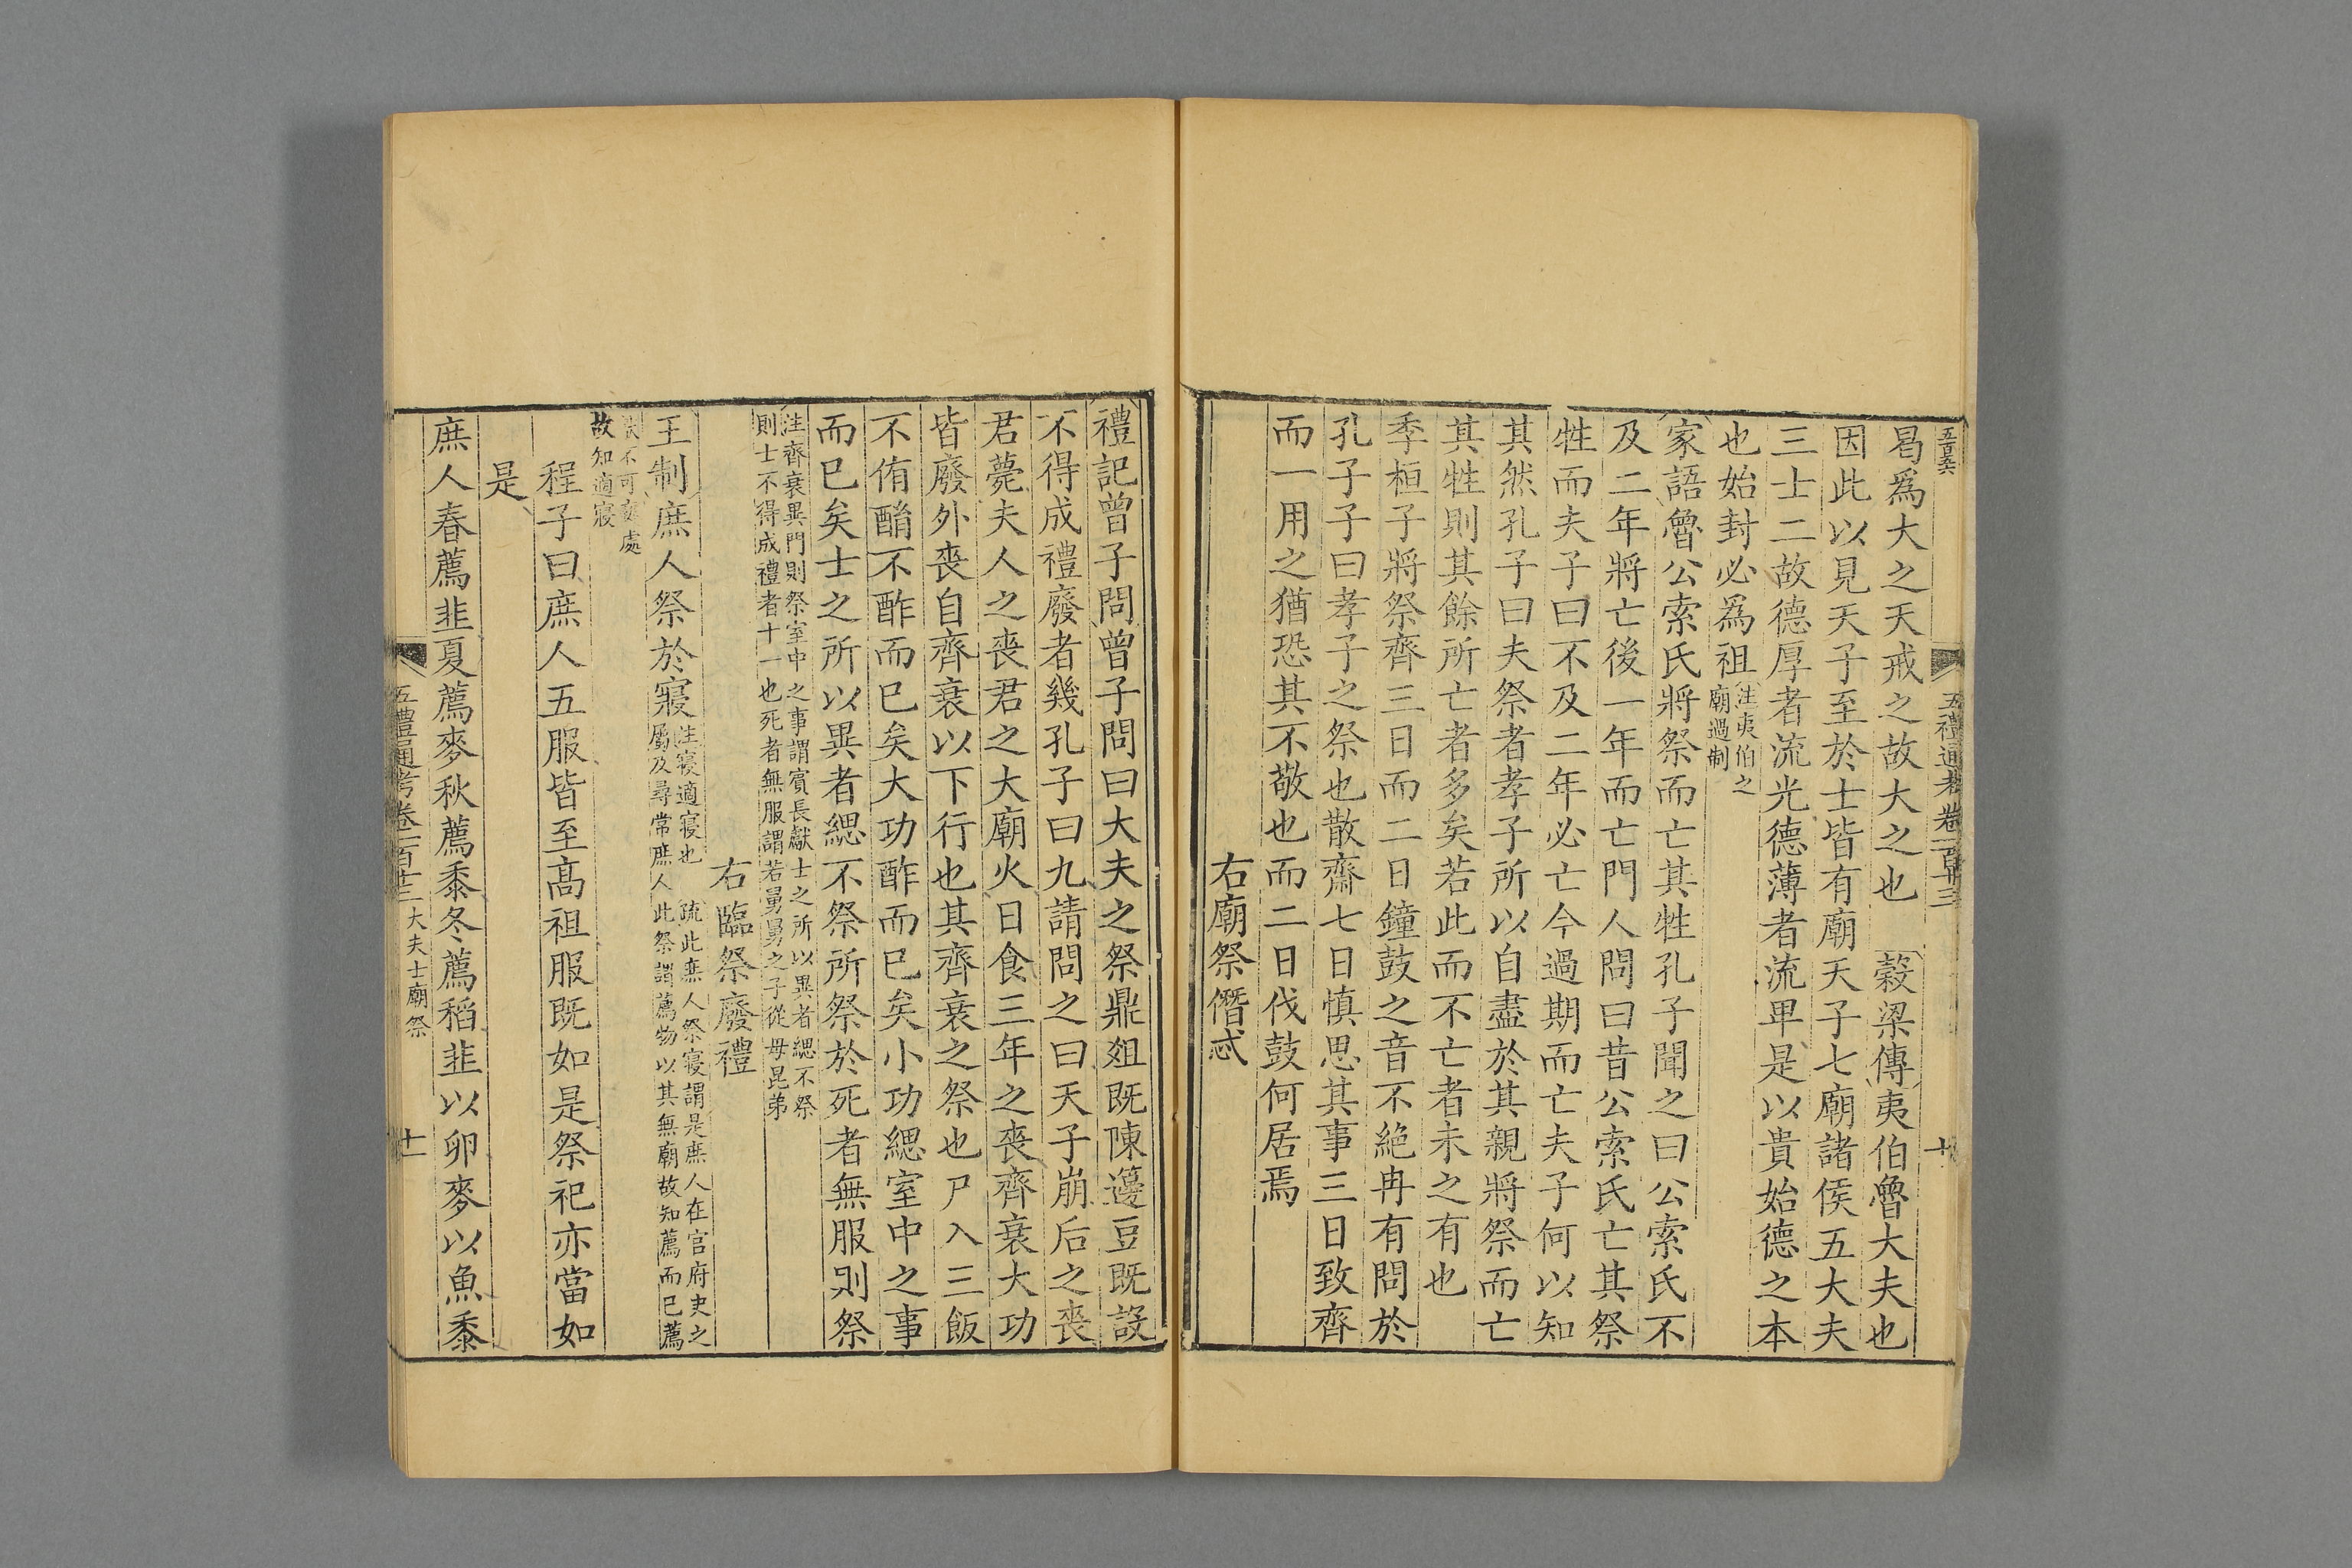 曷爲大之天戒之故大之也 穀梁傳夷伯魯大夫也
因此以見天子至於士皆有廟天子七廟諸侯五大夫
三士二故德厚者流光德薄者流卑是以貴始德之本
也始封必爲祖注夷伯之廟過制
家語魯公索氏將祭而亡其牲孔子聞之曰公索氏不
及二年將亡後一年而亡門人問曰昔公索氏亡其祭
牲而夫子曰不及二年必亡今過期而亡夫子何以知
其然孔子曰夫祭者孝子所以自盡於其親將祭而亡
其牲則其餘所亡者多矣若此而不亡者未之有也
季桓子將祭齊三日而二日鐘鼓之音不絕冉有問於
孔子子曰孝子之祭也散齋七日慎思其事三日致齊
而一用之猶恐其不敬也而二日伐鼓何居焉
右廟祭僭忒
五禮通考卷一百十三
十
禮記曾子問曾子問曰大夫之祭鼎俎既陳籩豆既設
不得成禮廢者幾孔子曰九請問之曰天子崩后之喪
君薨夫人之喪君之大廟火日食三年之喪齊衰大功
皆廢外喪自齊衰以下行也其齊衰之祭也尸入三飯
不侑酳不酢而已矣大功酢而已矣小功緦室中之事
而已矣士之所以異者緦不祭所祭於死者無服則祭
注齊衰異門則祭室中之事謂賓長獻士之所以異者緦不祭
則士不得成禮者十一也死者無服謂若舅舅之子從母昆弟
右臨祭廢禮
王制庶人祭於寢注寢適寢也 疏此庶人祭寢謂是庶人在官府史之
屬及尋常庶人此祭謂薦物以其無廟故知薦而已薦
不可處
故知適寢
程子曰庶人五服皆至高祖服既如是祭祀亦當如
是
庶人春薦韭夏薦麥秋薦黍冬薦稻韭以卵麥以魚黍
五禮通考卷一百十三 大夫士廟祭
十一